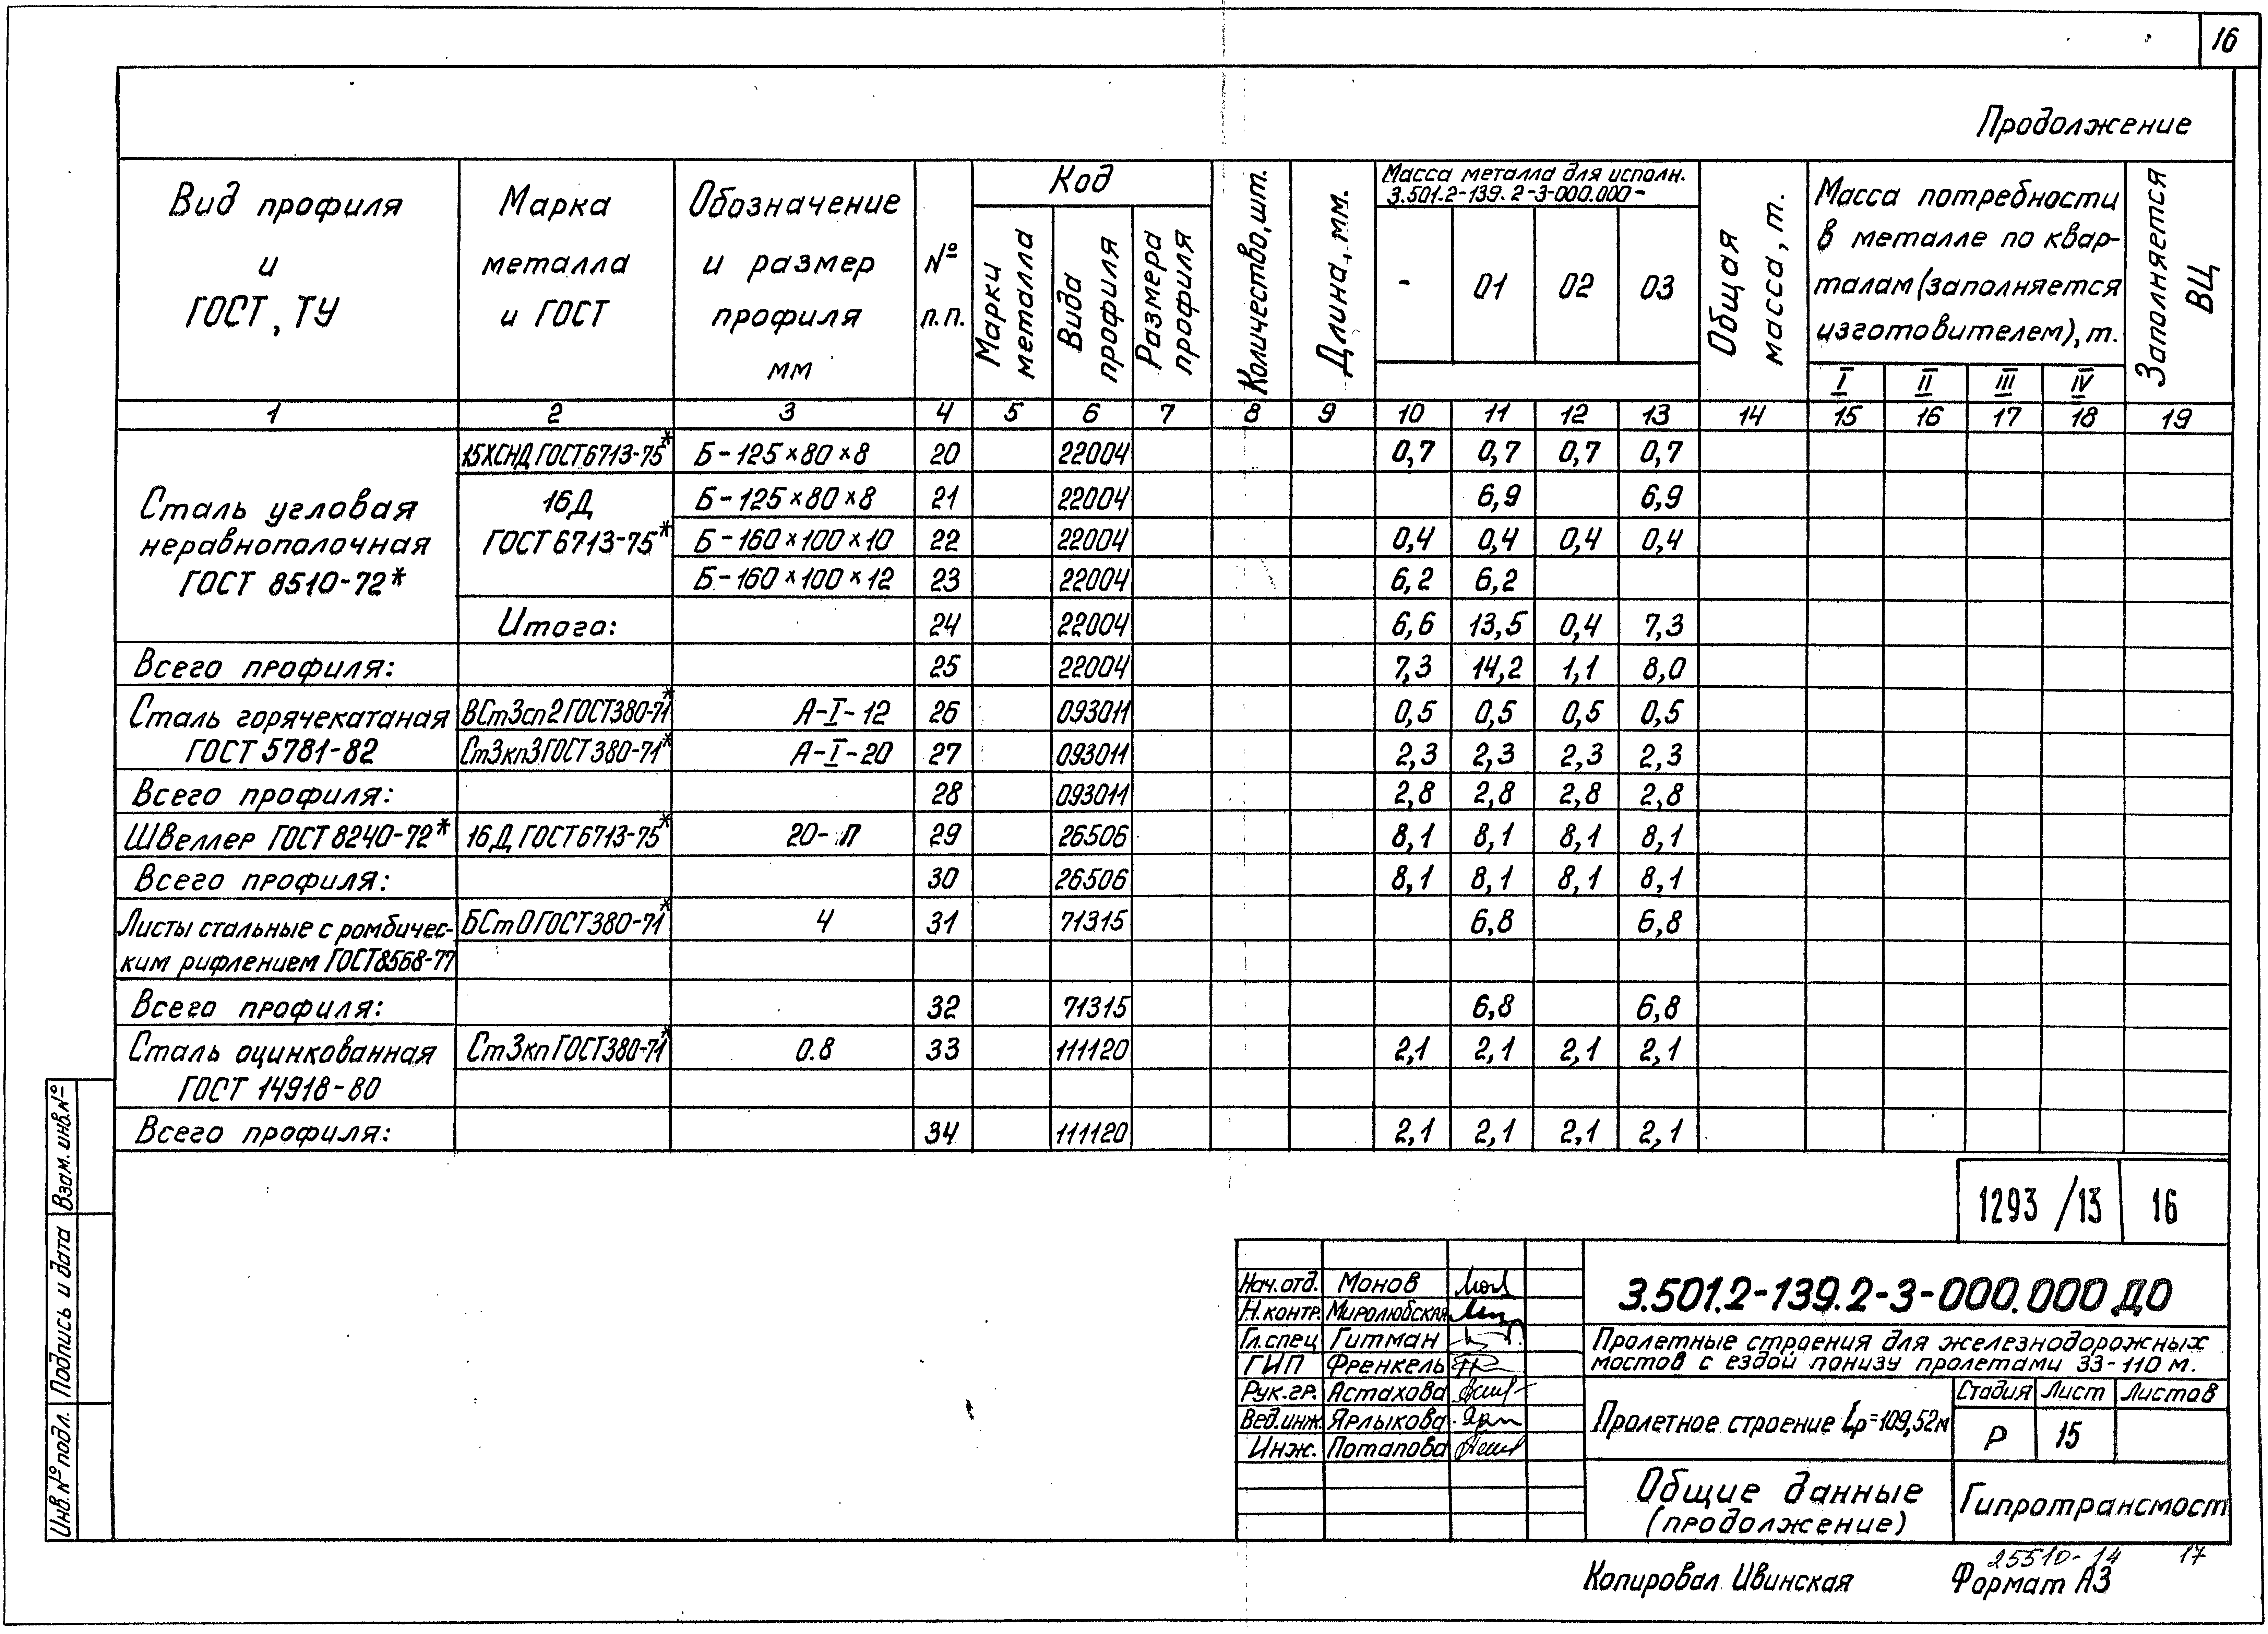 16
Продолжение
Вид профиля и ГОСТ, ТУ
Марка металла и ГОСТ
Обозначение и размер профиля мм
№ п.п.
Код
Марки металла
Вида профиля
Размера профиля
Количество, шт.
Длина, мм.
Масса металла для исполн. 3.501.2-139.2-3-000.000-
- 01 02 03
Общая масса, т.
Масса потребности в металле по кварталам (заполняется изготовителем), т.
I II III IV
Заполняется ВЦ
1 2 3 4 5 6 7 8 9 10 11 12 13 14 15 16 17 18 19
Сталь угловая
неравнополочная
ГОСТ 8510-72*
15ХСНД ГОСТ 6713-75* Б-125×80×8 20 22004 0,7 0,7 0,7 0,7
16Д ГОСТ 6713-75* Б-125×80×8 21 22004 6,9 6,9
Б-160×100×10 22 22004 0,4 0,4 0,4 0,4
Б-160×100×12 23 22004 6,2 6,2
Итого: 24 22004 6,6 13,5 0,4 7,3
Всего профиля: 25 22004 7,3 14,2 1,1 8,0
Сталь горячекатаная
ГОСТ 5781-82
ВСт3сп2 ГОСТ380-71* А-I-12 26 093011 0,5 0,5 0,5 0,5
Ст3кп3 ГОСТ 380-71* А-I-20 27 093011 2,3 2,3 2,3 2,3
Всего профиля: 28 093011 2,8 2,8 2,8 2,8
Швеллер ГОСТ 8240-72* 16Д ГОСТ 6713-75* 20-П 29 26506 8,1 8,1 8,1 8,1
Всего профиля: 30 26506 8,1 8,1 8,1 8,1
Листы стальные с ромбичес-
ким рифлением ГОСТ8568-77
БСт0 ГОСТ380-71* 4 31 71315 6,8 6,8
Всего профиля: 32 71315 6,8 6,8
Сталь оцинкованная
ГОСТ 14918-80
Ст3кп ГОСТ380-71* 0.8 33 111120 2,1 2,1 2,1 2,1
Всего профиля: 34 111120 2,1 2,1 2,1 2,1
Взам. инв.№
Подпись и дата
Инв.№ подл.
1293 /13 16
Нач.отд. Монов
Н.контр. Миролюбская
Гл.спец Гитман
ГИП Френкель
Рук.гр. Астахова
Вед.инж. Ярлыкова
Инж. Потапова
3.501.2-139.2-3-000.000 ДО
Пролетные строения для железнодорожных
мостов с ездой понизу пролетами 33-110 м.
Пролетное строение Lр=109,52м
Стадия Лист Листов
Р 15
Общие данные
(продолжение)
Гипротрансмост
25510-14 17
Копировал Ивинская
Формат А3